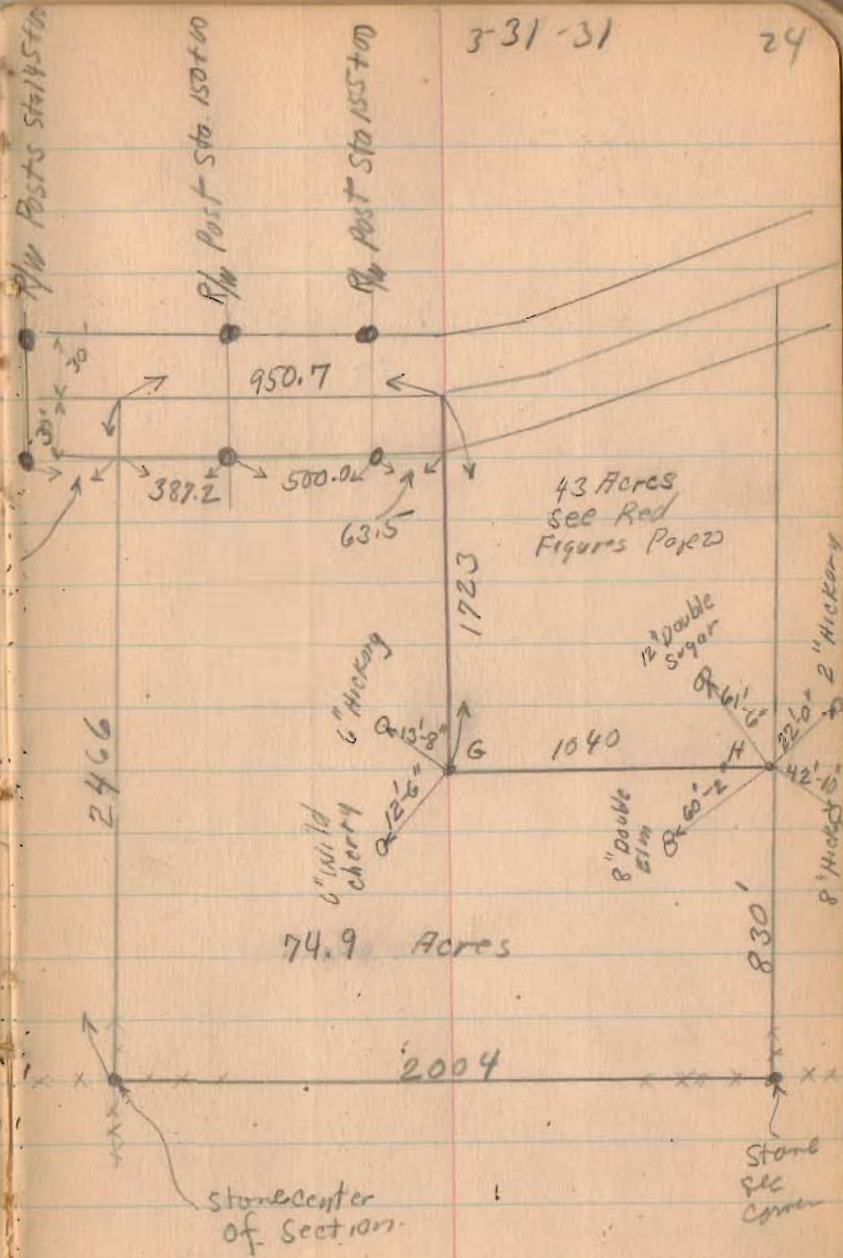 3-31-31
24
R/W Posts Sta 145+00
R/W Post Sta. 150+00
R/W Post Sta 155+00
30'
30'
950.7
387.2
500.0
63.5
43 Acres
see Red
Figures Page 20
1723
2466
6" Hickory
13'-8"
G
12'-6"
6" Wild
cherry
1040
H
12" Double
Sugar
61'-6"
22'-0"
2" Hickory
42'-10"
8" Hickory
60'-2
8" Double
Elm
830'
74.9 Acres
2004
stone center
of Section.
Stone
sec
corner